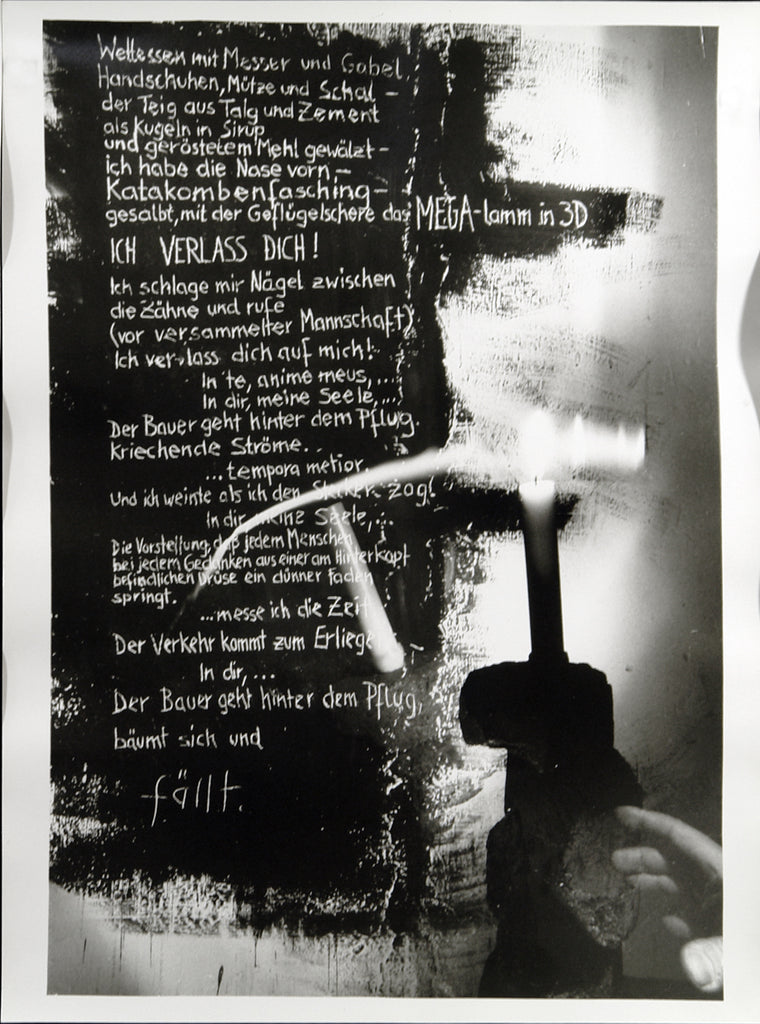 Wettessen mit Messer und Gabel,
Handschuhen, Mütze und Schal –
der Teig aus Talg und Zement
als Kugeln in Sirup
und geröstetem Mehl gewälzt –
ich habe die Nase vorn –
Katakombenfasching –
gesalbt, mit der Geflügelschere das MEGA-lamm in 3D
ICH VERLASS DICH!
Ich schlage mir Nägel zwischen
die Zähne und rufe
(vor versammelter Mannschaft)
Ich ver-lass dich auf mich!
In te, anime meus,...
In dir, meine Seele,...
Der Bauer geht hinter dem Pflug.
Kriechende Ströme...
...tempora metior.
Und ich weinte als ich den Stecker zog!
In dir, meine Seele,...
Die Vorstellung, daß jedem Menschen
bei jedem Gedanken aus einer am Hinterkopf
befindlichen Drüse ein dünner Faden
springt.
...messe ich die Zeit
Der Verkehr kommt zum Erliegen
In dir,...
Der Bauer geht hinter dem Pflug,
bäumt sich und
fällt.